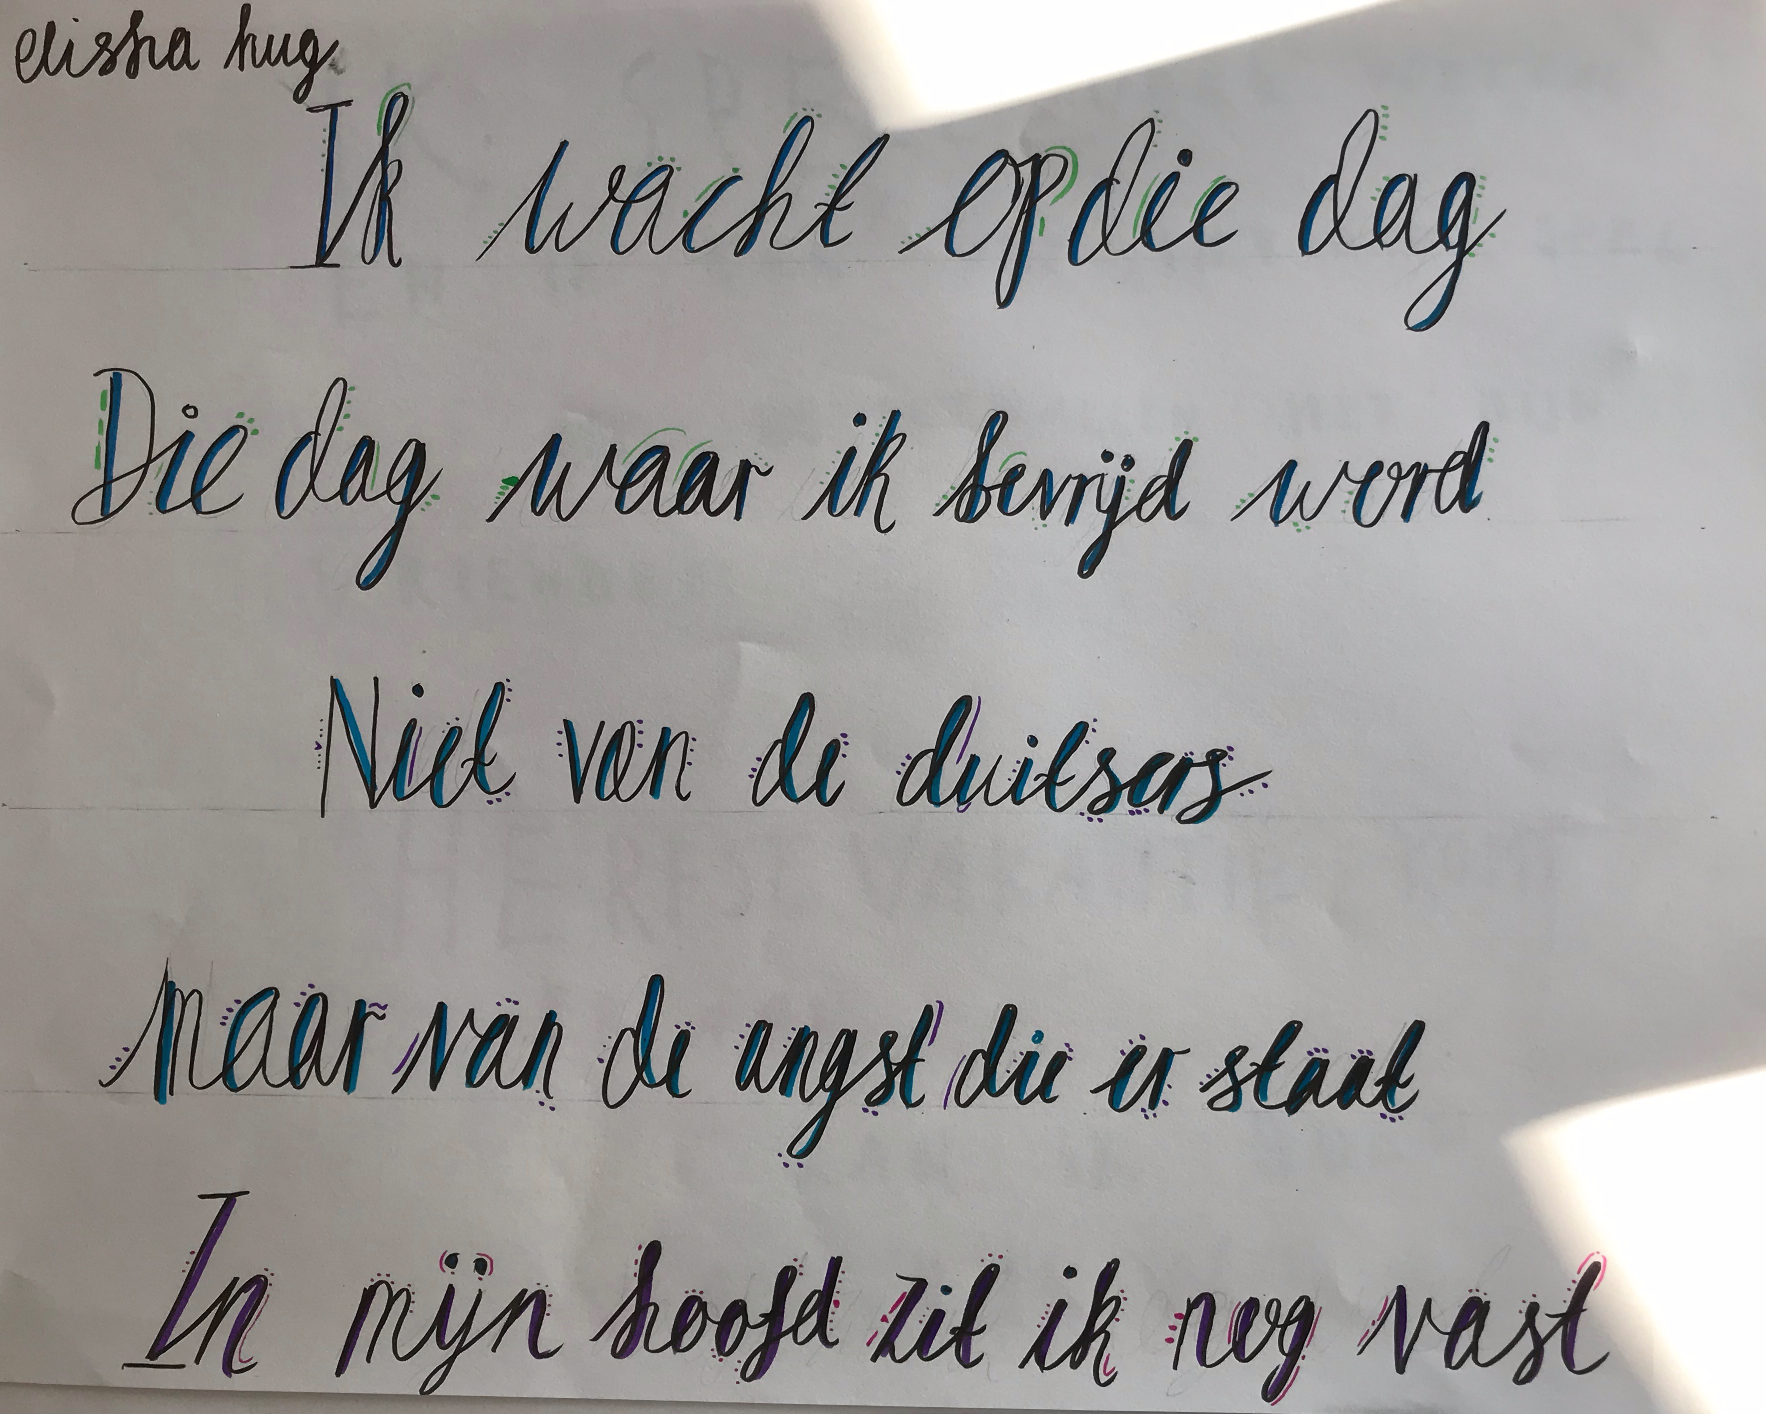 elisha hug
Ik wacht op die dag
Die dag waar ik bevrijd word
Niet van de duitsers
maar van de angst die er staat
In mijn hoofd zit ik nog vast